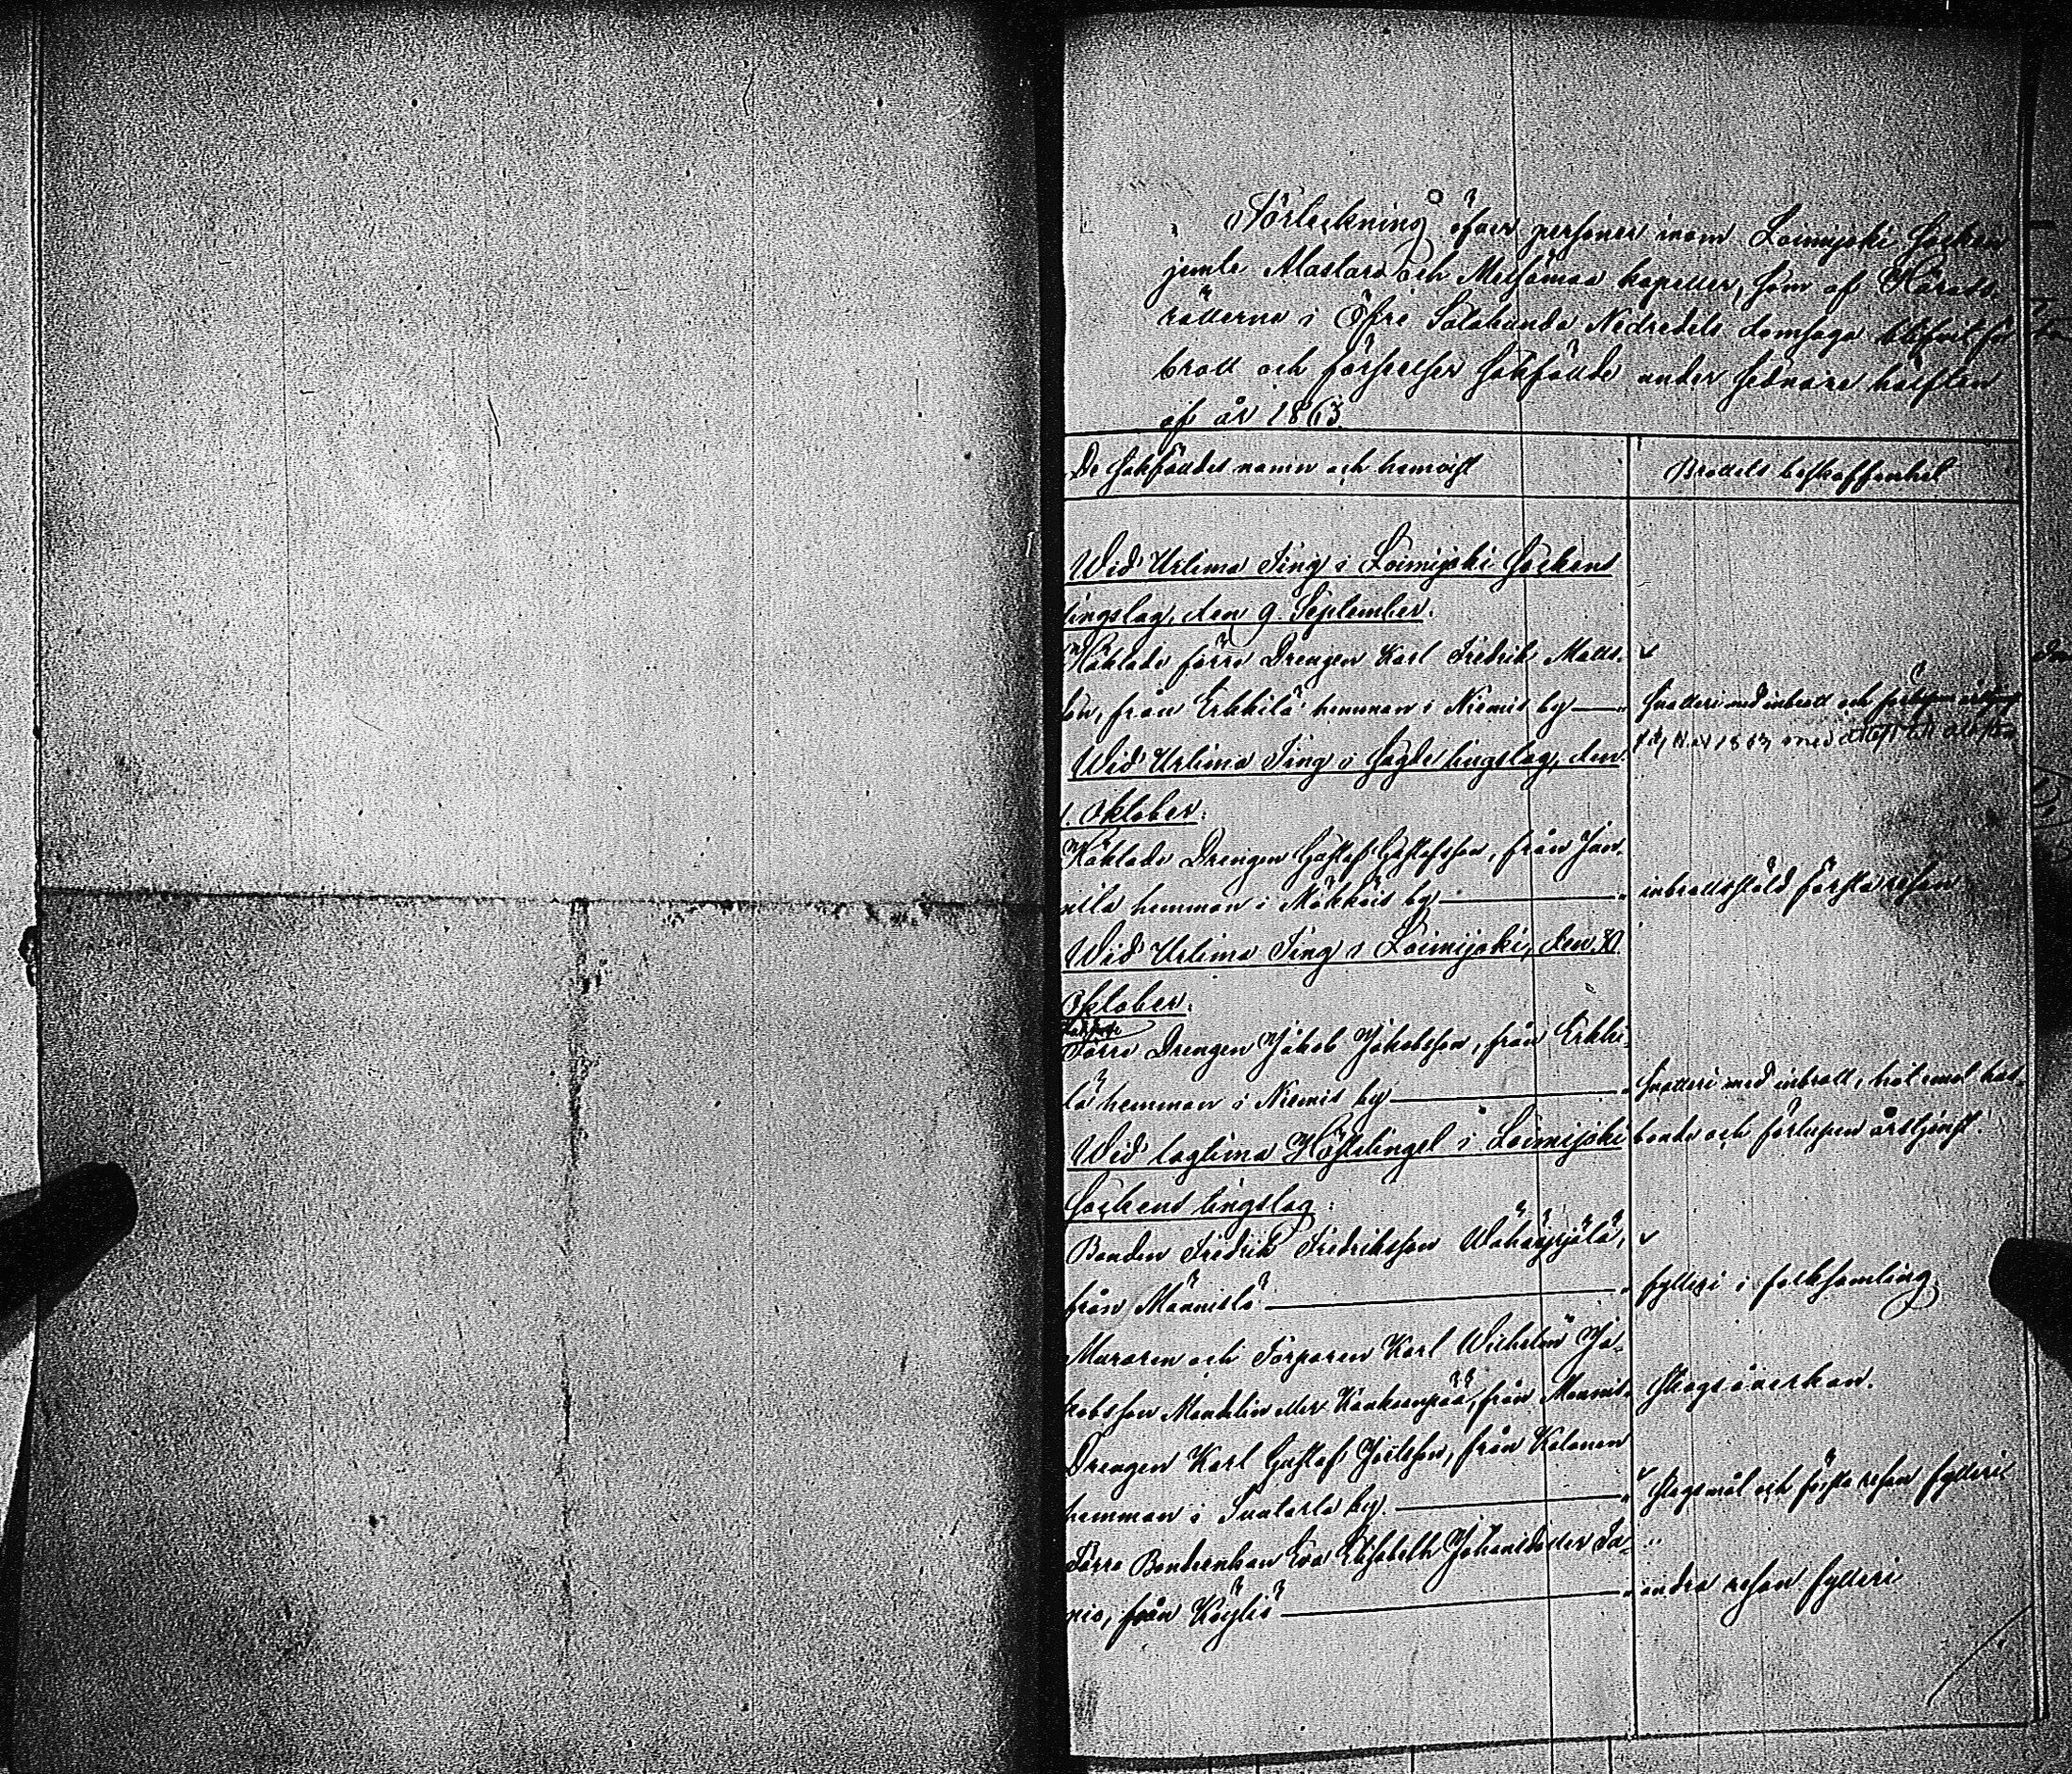 Förteckning öfver personer inom Loimijoki Socken
jemte Alastaro och Metsämaa kapeller, som af Härads-
rätterne i Öfre Satakunda Nedredels domsaga blifvit för
brott och förseelser sakfällde under sednare hälften
af år 1863
De sakfälldes namn och hemvist
Brottets beskaffenhet
Wid Urtima Ting i Loimijoki Sockens
tingslag, den 9. September.
Häktade förre Drengen Karl Fredrik Matts-
son, från Erkkilä hemman i Niemis by
Snatteri med inbrott och
1863 med
Wid Urtima Ting i Sagde tingslag, den
1. Oktober.
Häktade Drengen Gustaf Gustafsson, från Jun-
nila hemman i Mäkkäis by
inbrottsstöld första resan
Wid Urtima Ting i Loimijoki, den 30
Oktober.
Häktade
Förre Drengen Jakob Jakobsson, från Erkki-
lä hemman i Niemis by
Snatteri med inbrott, hot emot hus-
bonde och förlupen årstjenst.
Wid lagtima Hösttinget i Loimijoki
Sockens tingslag:
Bonden Fredrik Fredriksson Wähäyrjölä,
från Männistö
fylleri i folksamling.
Muraren och Torparen Karl Wilhelm Ja-
kobsson Mandelin eller Kankaanpää, från Mannis
Skogsåverkan.
Drengen Karl Gustaf Joelsson, från Kalonen
hemman i Suntarla by.
Slagsmål och första resan fylleri
Förre Bondeenkan Eva Elisabeth Johansdotter Ta-
nio, från Köyliö
andra resan fylleri